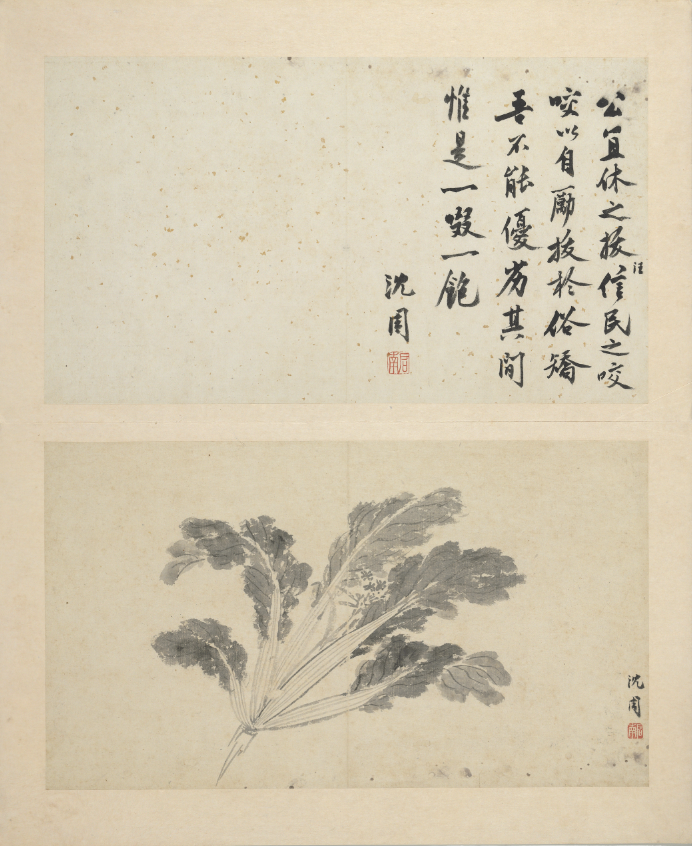 公宜休之拔汪信民之咬
咬以自勵拔於俗矯
吾不能優劣其間
惟是一啜一飽
沈周
啟南
沈周
啟南